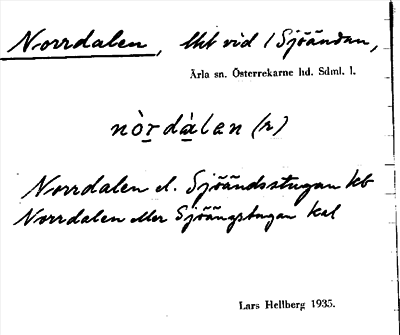 Norrdalen, lht vid / Sjöändan,
Ärla sn. Österrekarne hd. Sdml. l.
nòr̲dà̲lan (r)
Norrdalen el. Sjöändsstugan kb
Norrdalen eller Sjöängstugan kal
Lars Hellberg 1935.